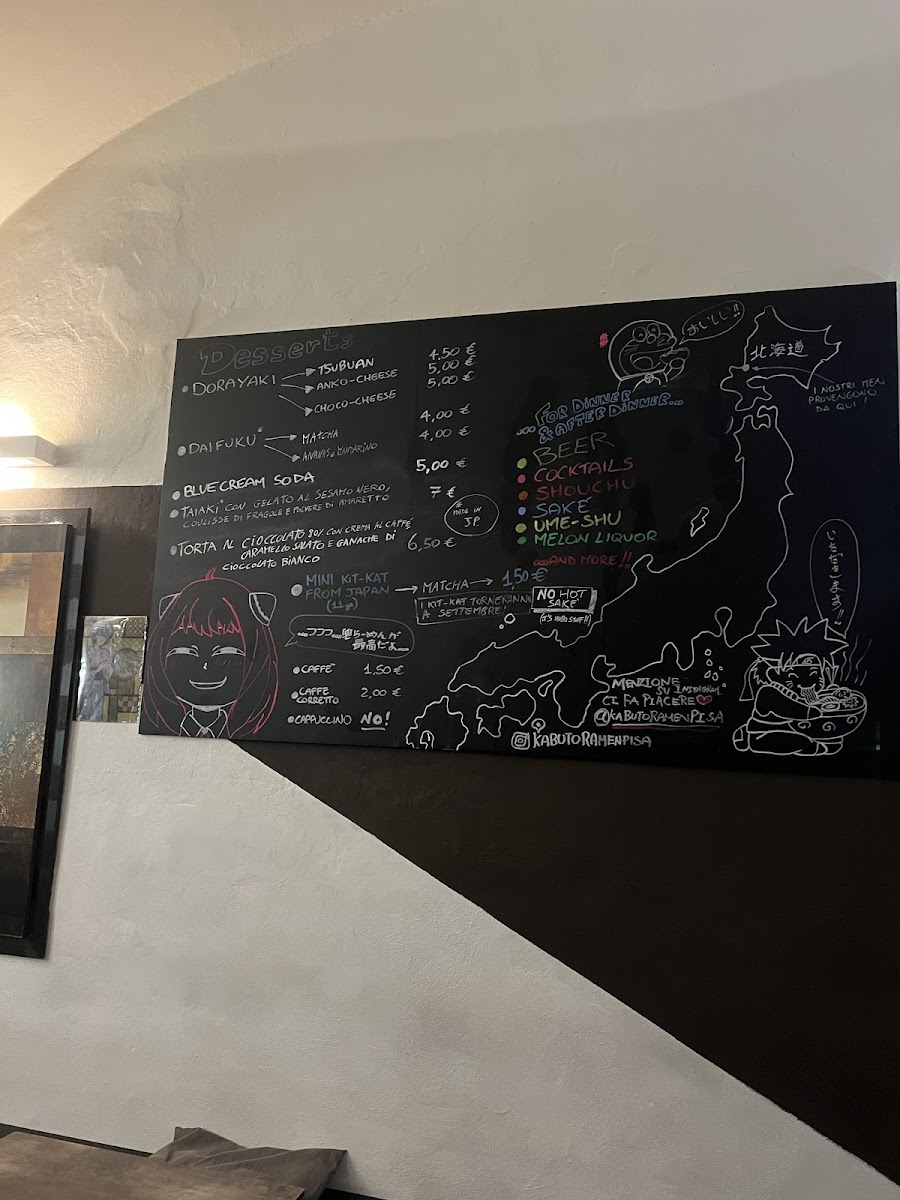 Desserts
DORAYAKI
TSUBUAN 4.50 €
ANKO-CHEESE 5,00 €
CHOCO-CHEESE 5,00 €
DAIFUKU*
MATCHA 4,00 €
ANANAS e MANDARINO 4,00 €
BLUE CREAM SODA 5,00 €
TAIAKI* CON GELATO AL SESAMO NERO, 7 €
COULISSE DI FRAGOLE E POLVERE DI AMARETTO
* MADE IN
JP
TORTA AL CIOCCOLATO 80% CON CREMA AL CAFFÈ
CARAMELLO SALATO E GANACHE DI 6,50 €
CIOCCOLATO BIANCO
MINI KIT-KAT MATCHA 1.50 €
FROM JAPAN
(11g)
I KIT-KAT TORNERANNO
A SETTEMBRE!
NO HOT
SAKE
最高だよ...
CAFFÈ 1,50 €
CAFFÈ 2,00 €
CORRETTO
CAPPUCCINO NO!
おいしい!!
北海道
I NOSTRI MEN
PROVENGONO
DA QUI!
... FOR DINNER
& AFTER DINNER...
BEER
COCKTAILS
SHOUCHU
SAKÉ
UME-SHU
MELON LIQUOR
...AND MORE!!
MENZIONE
SU INSTAGRAM
CI FA PIACERE
@KABUTORAMENPISA
KABUTORAMENPISA